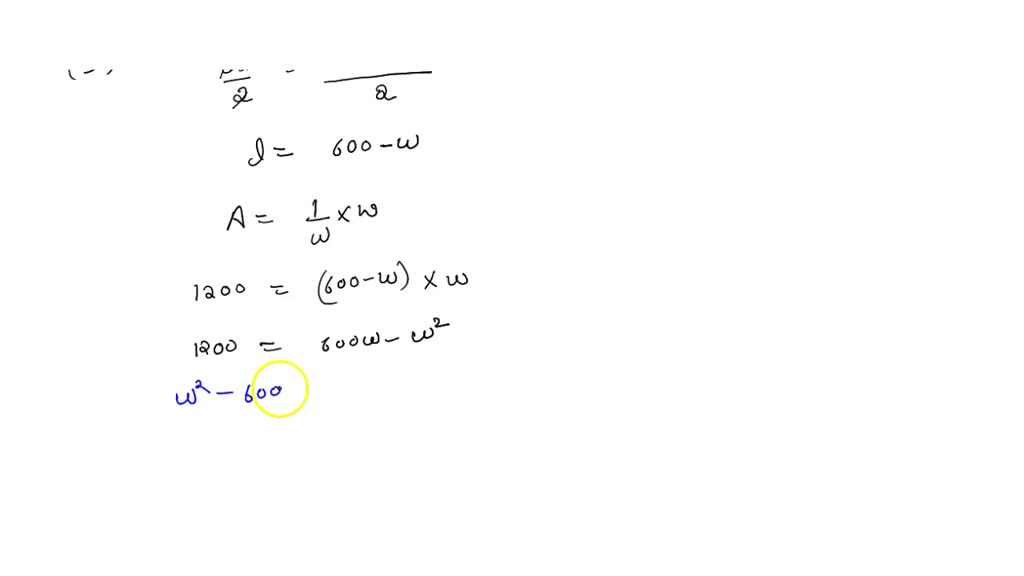 2 = 2
l = 600 - w
A = 1/w × w
1200 = (600-w) × w
1200 = 600w - w²
w² - 600